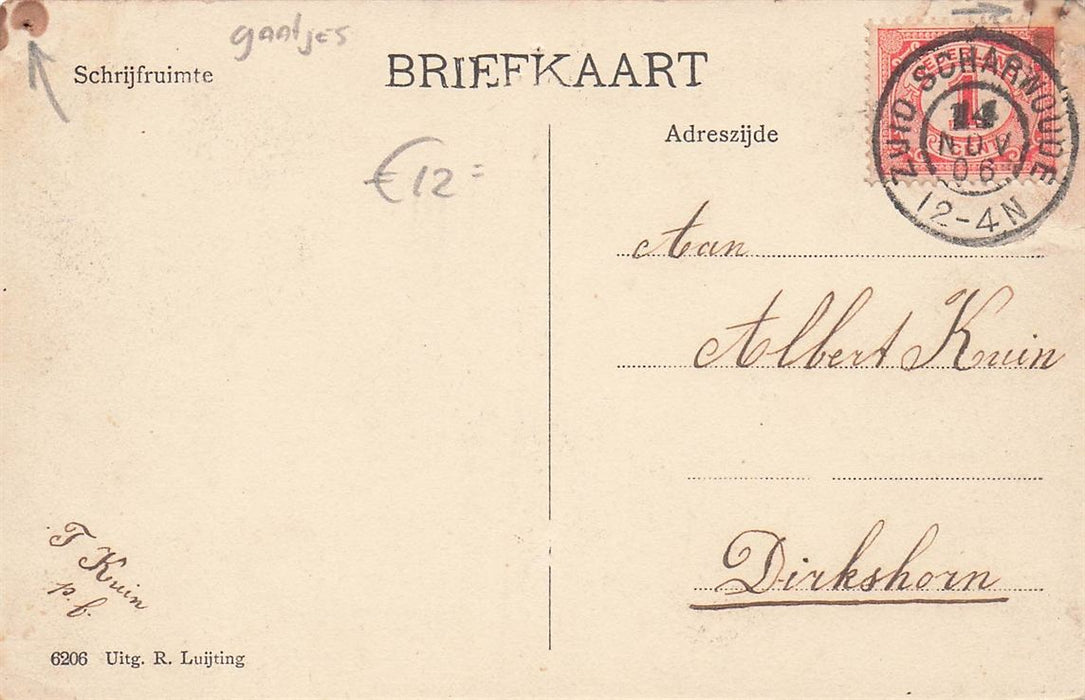 gaatjes
Schrijfruimte
BRIEFKAART
€12=
Adreszijde
1
CENT
ZUID SCHARWOUDE
14
NOV
06
12-4N
Aan
Albert Kuin
Dirkshorn
T Kuin
p.f.
6206 Uitg. R. Luijting